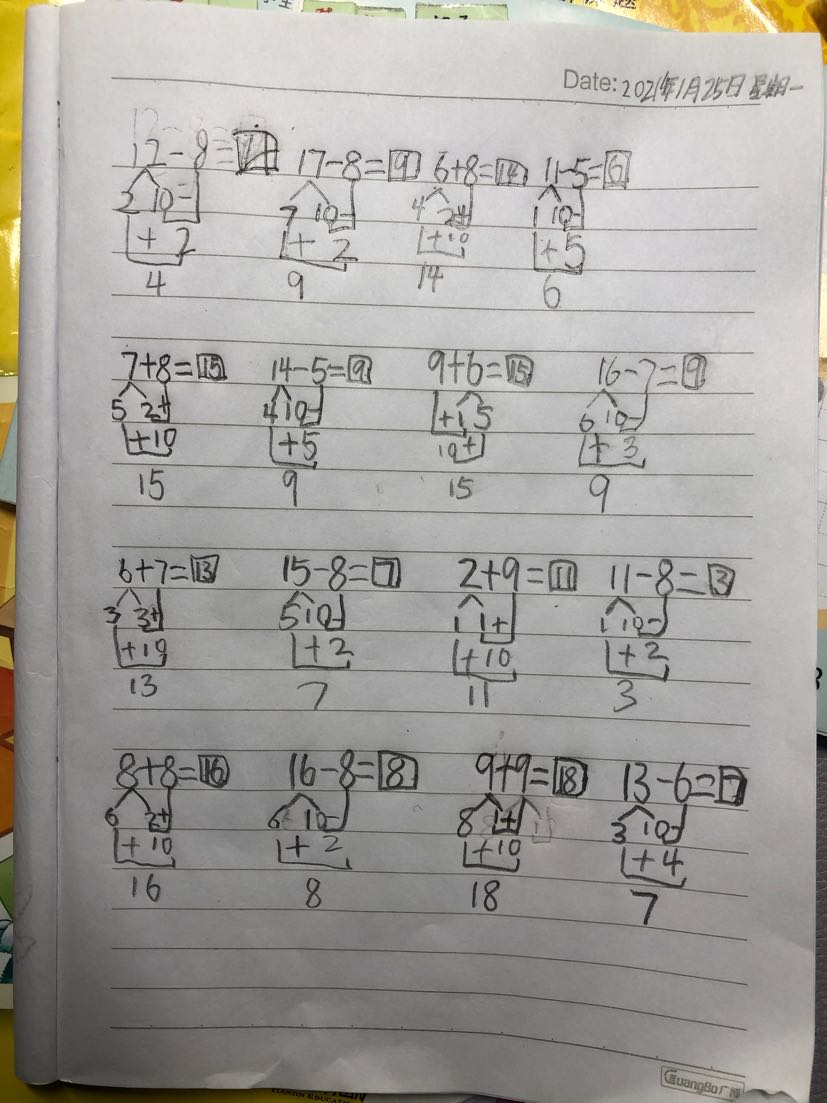 Date: 2021年1月25日 星期一
12-8=4 17-8=9 6+8=14 11-5=6
2 10- 7 10- 4 2+ 1 10-
+ 2 + 2 +10 +5
4 9 14 6
7+8=15 14-5=9 9+6=15 16-7=9
5 2+ 4 10- +1 5 6 10-
+10 +5 10+ + 3
15 9 15 9
6+7=13 15-8=7 2+9=11 11-8=3
3 3+ 5 10- 1 1+ 1 10-
+10 +2 +10 +2
13 7 11 3
8+8=16 16-8=8 9+9=18 13-6=7
6 2+ 6 10- 8 1+ 3 10-
+ 10 + 2 +10 +4
16 8 18 7
GuangBo广博